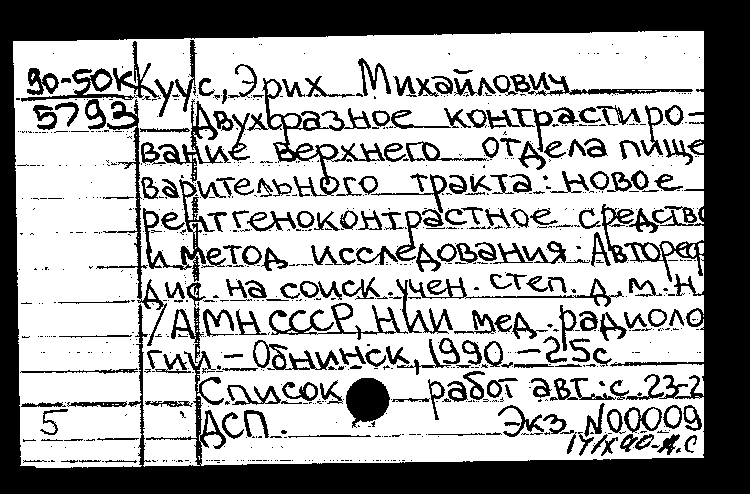 90-50К Куус, Эрих Михайлович
5793 Двухфазное контрастиро-
вание верхнего отдела пище
варительного тракта: новое
рентгеноконтрастное средство
и метод исследования: Автореф
дис. на соиск. учен. степ. д.м.н.
/АМН СССР, НИИ мед. радиоло
гии. – Обнинск, 1990. – 25с
Список работ авт.: с. 23-2
5 ДСП. Экз. N00009